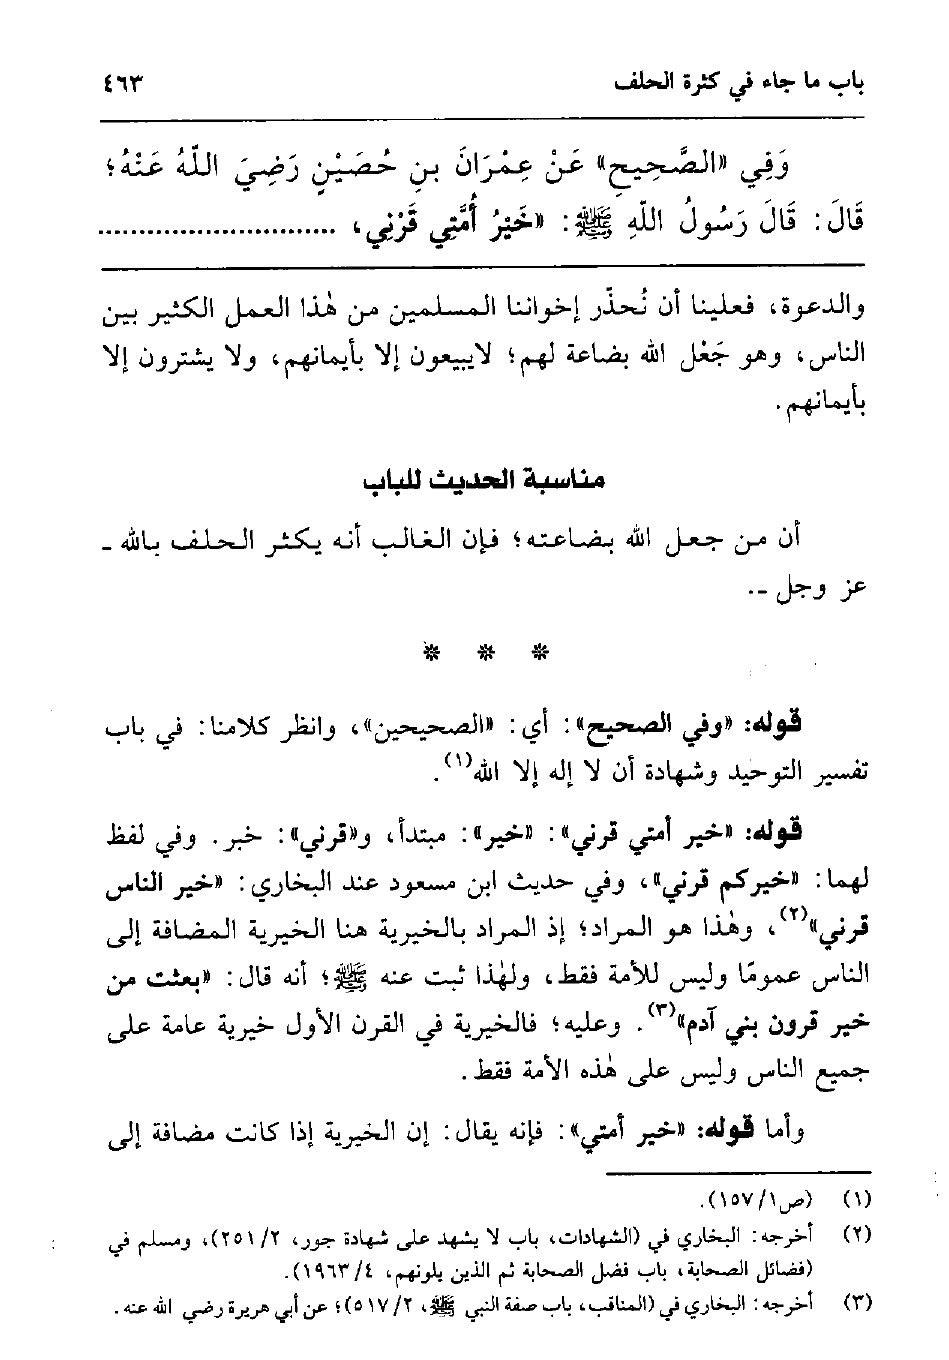 باب ما جاء في كثرة الحلف ٤٦٣
وَفِي «الصَّحِيحِ» عَنْ عِمْرَانَ بنِ حُصَيْنٍ رَضِيَ اللّهُ عَنْهُ؛
قَالَ: قَالَ رَسُولُ اللّهِ ﷺ: «خَيْرُ أُمَّتِي قَرْنِي، ..............................
والدعوة، فعلينا أن نُحذّر إخواننا المسلمين من هٰذا العمل الكثير بين
الناس، وهو جَعْل الله بضاعة لهم؛ لايبيعون إلا بأيمانهم، ولا يشترون إلا
بأيمانهم.
مناسبة الحديث للباب
أن من جعل الله بضاعته؛ فإن الغالب أنه يكثر الحلف بالله ـ
عز وجل ـ.
* * *
قوله: «وفي الصحيح»: أي: «الصحيحين»، وانظر كلامنا: في باب
تفسير التوحيد وشهادة أن لا إله إلا الله(١).
قوله: «خير أمتي قرني»: «خير»: مبتدأ، و«قرني»: خبر. وفي لفظ
لهما: «خيركم قرني»، وفي حديث ابن مسعود عند البخاري: «خير الناس
قرني»(٢)، وهٰذا هو المراد؛ إذ المراد بالخيرية هنا الخيرية المضافة إلى
الناس عمومًا وليس للأمة فقط، ولهٰذا ثبت عنه ﷺ؛ أنه قال: «بعثت من
خير قرون بني آدم»(٣). وعليه؛ فالخيرية في القرن الأول خيرية عامة على
جميع الناس وليس على هٰذه الأمة فقط.
وأما قوله: «خير أمتي»: فإنه يقال: إن الخيرية إذا كانت مضافة إلى
(١) (ص١/ ١٥٧).
(٢) أخرجه: البخاري في (الشهادات، باب لا يشهد على شهادة جور، ٢/ ٢٥١)، ومسلم في
(فضائل الصحابة، باب فضل الصحابة ثم الذين يلونهم، ٤/ ١٩٦٣).
(٣) أخرجه: البخاري في (المناقب، باب صفة النبي ﷺ، ٢/ ٥١٧)؛ عن أبي هريرة رضي الله عنه.